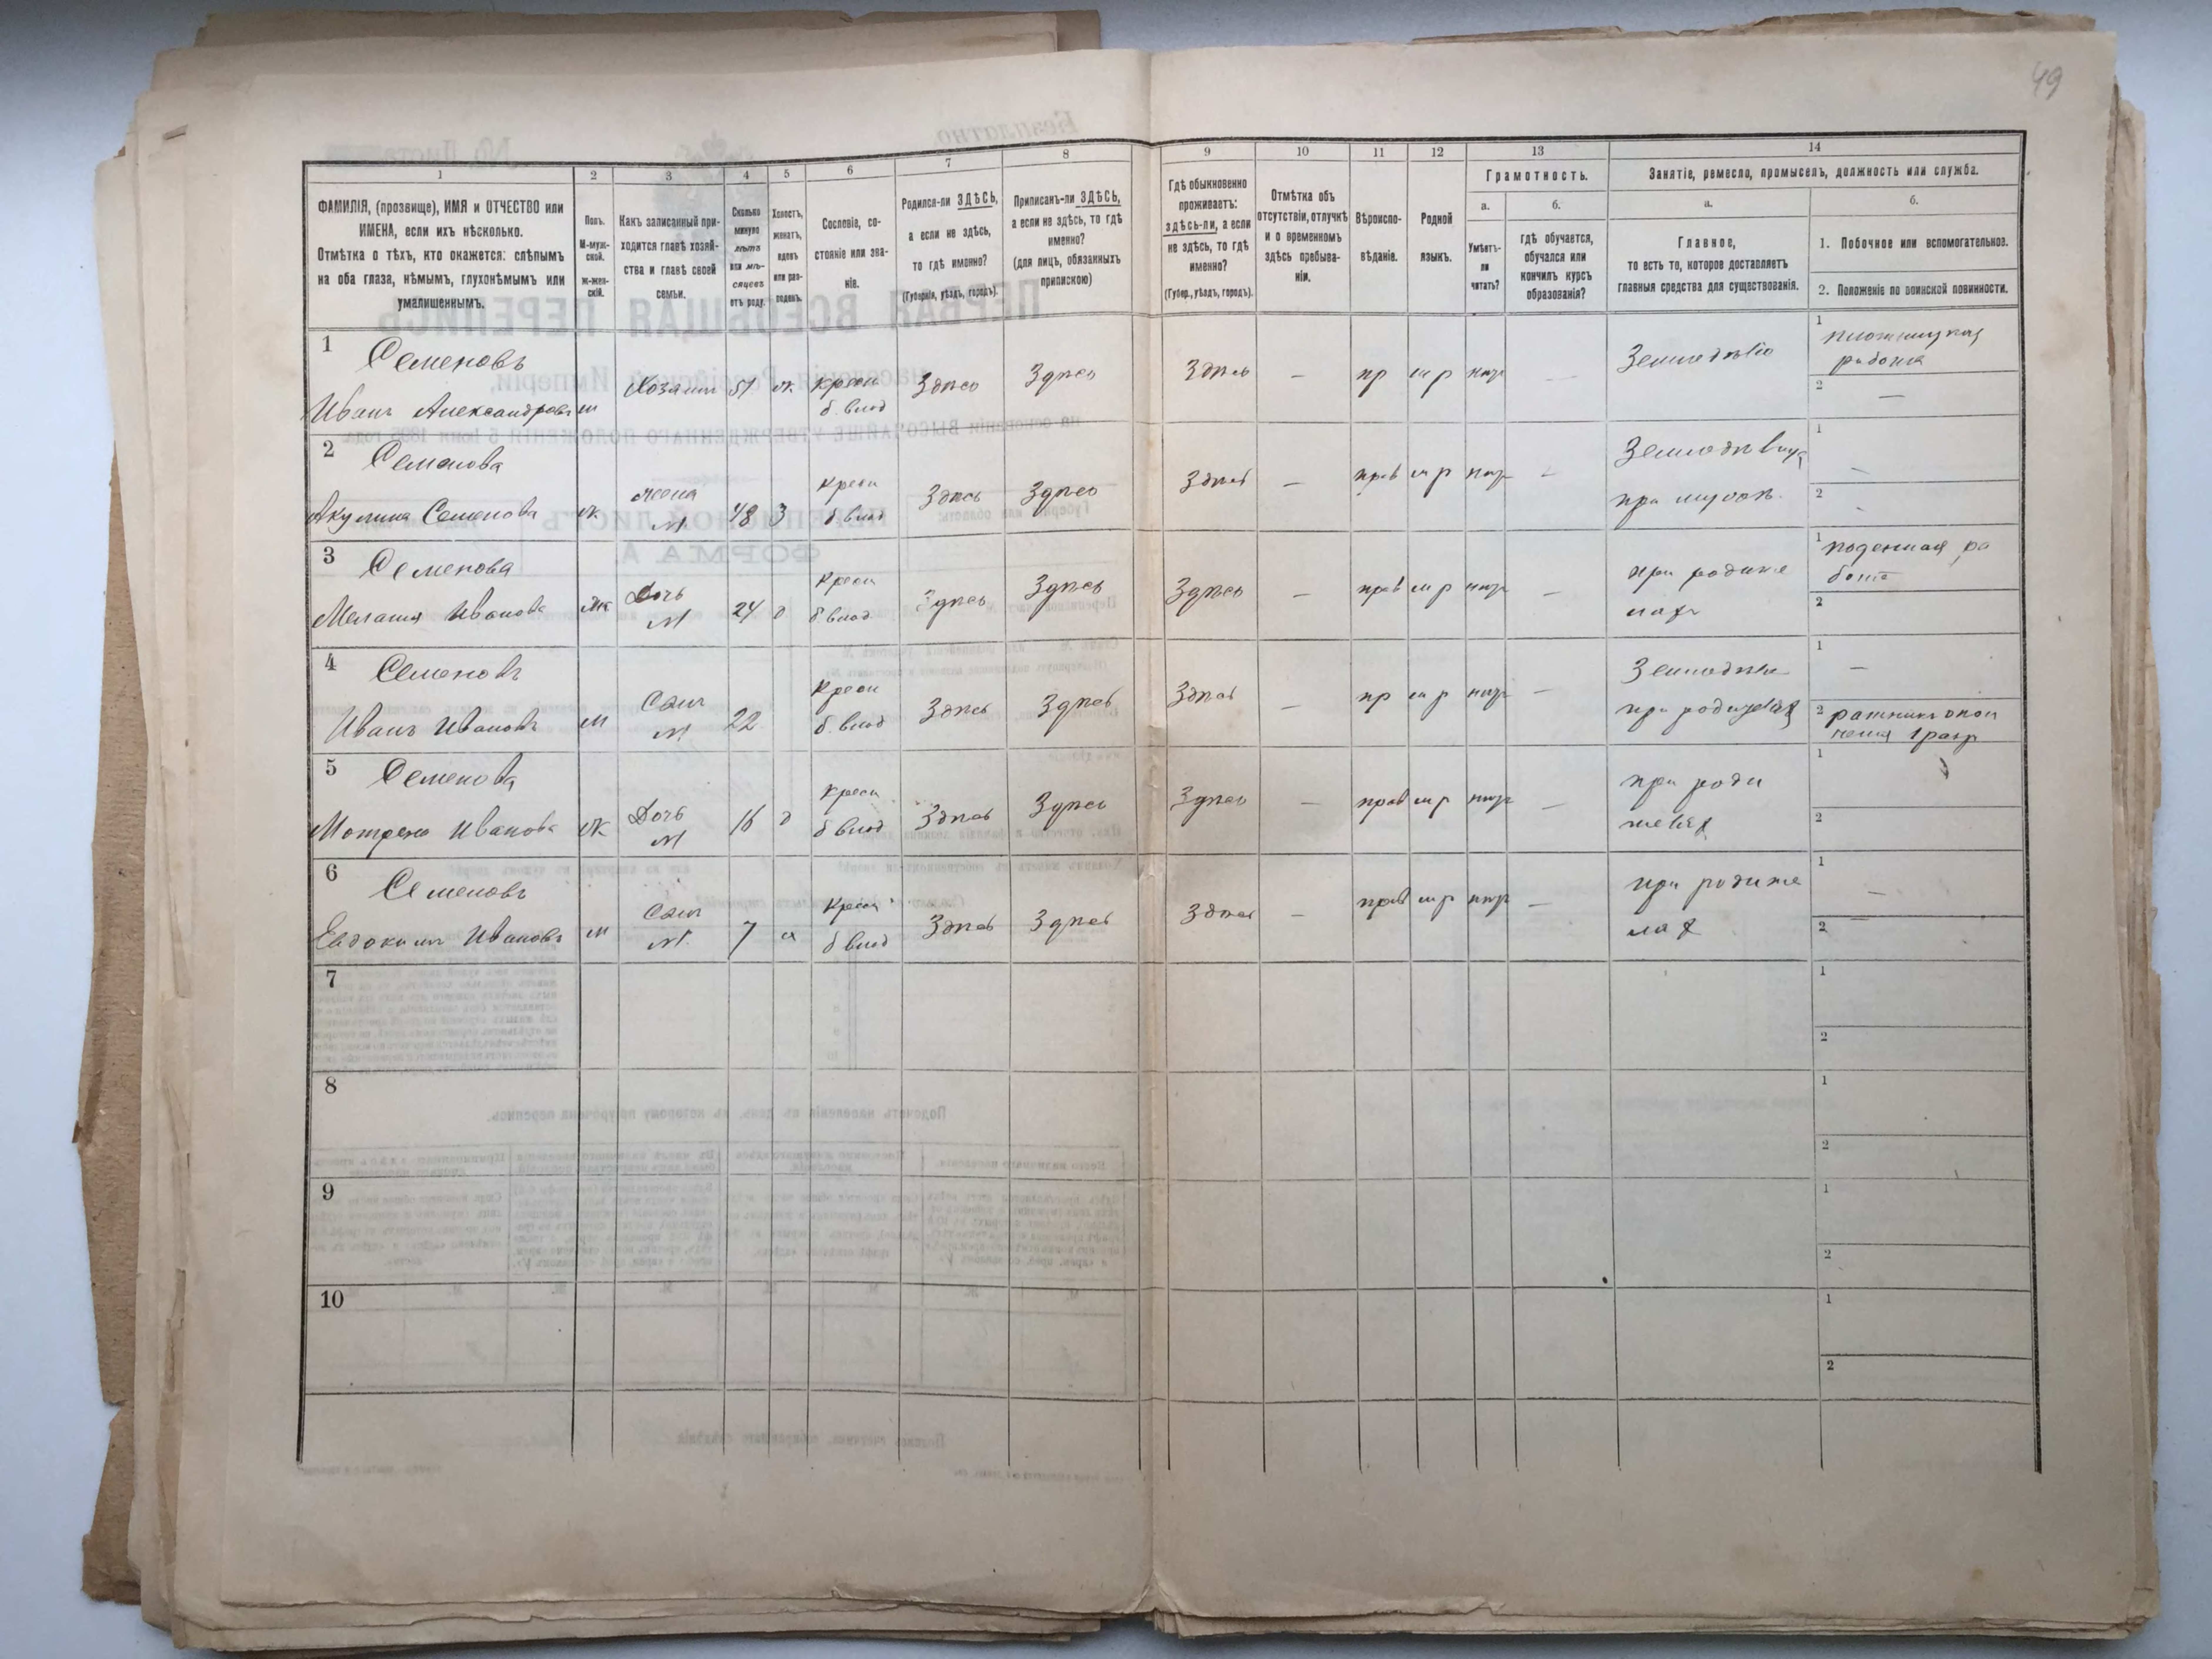 49
1
2
3
4
5
6
7
8
9
10
11
12
13
14
ФАМИЛІЯ, (прозвище), ИМЯ и ОТЧЕСТВО или
ИМЕНА, если ихъ нѣсколько.
Отмѣтка о тѣхъ, кто окажется: слѣпымъ
на оба глаза, нѣмымъ, глухонѣмымъ или
умалишеннымъ.
Полъ.
М-муж-
ской.
ж-жен-
скій.
Какъ записанный при-
ходится главѣ хозяй-
ства и главѣ своей
семьи.
Сколько
минуло
лѣтъ
или мѣ-
сяцевъ
отъ роду.
Холостъ,
женатъ,
вдовъ
или раз-
веденъ.
Сословіе, со-
стояніе или зва-
ніе.
Родился-ли ЗДѢСЬ,
а если не здѣсь,
то гдѣ именно?
(Губернія, уѣздъ, городъ).
Приписанъ-ли ЗДѢСЬ,
а если не здѣсь, то гдѣ
именно?
(для лицъ, обязанныхъ
припискою)
Гдѣ обыкновенно
проживаетъ:
здѣсь-ли, а если
не здѣсь, то гдѣ
именно?
(Губер., уѣздъ, городъ).
Отмѣтка объ
отсутствіи, отлучкѣ
и о временномъ
здѣсь пребыва-
ніи.
Вѣроиспо-
вѣданіе.
Родной
языкъ.
Грамотность.
а.
Умѣетъ-
ли
читать?
б.
гдѣ обучается,
обучался или
кончилъ курсъ
образованія?
Занятіе, ремесло, промыселъ, должность или служба.
а.
Главное,
то есть то, которое доставляетъ
главныя средства для существованія.
б.
1. Побочное или вспомогательное.
2. Положеніе по воинской повинности.
1
Семеновъ
Иванъ Александровъ
м
Хозаинъ
51
ж
крест
б. влад
Здпсь
Здпсь
Здпсь
—
пр
м р
—
Земледѣліе
1
плотницкая
работа
2
—
2
Семенова
Акулина Семенова
ж
жена
М
48
З
крест
б влад
Здпсь
Здпсь
Здпсь
—
прав
м р
—
при мужѣ.
1
—
2
3
Семенова
Мелания Иванова
ж
Дочь
М
24
д
крест
б влад
Здпсь
Здпсь
Здпсь
—
прав
м р
—
при родите
лях
1
поденная ра
бота
2
4
Семеновъ
Иванъ Ивановъ
м
Сын
М
22
крест
б. влад
Здпсь
Здпсь
Здпсь
—
пр
м р
—
при родителях
1
—
2
ратник опол
чения 1 разр
5
Семенова
Мотрена Иванова
ж
Дочь
М
16
д
крест
б влад
Здпсь
Здпсь
Здпсь
—
прав
м р
—
при роди
телях
1
2
6
Семеновъ
Евдокимъ Ивановъ
м
Сын
М
7
крест
б влад
Здпсь
Здпсь
Здпсь
—
прав
м р
—
при родите
лях
1
—
2
7
1
2
8
1
2
9
1
2
10
1
2